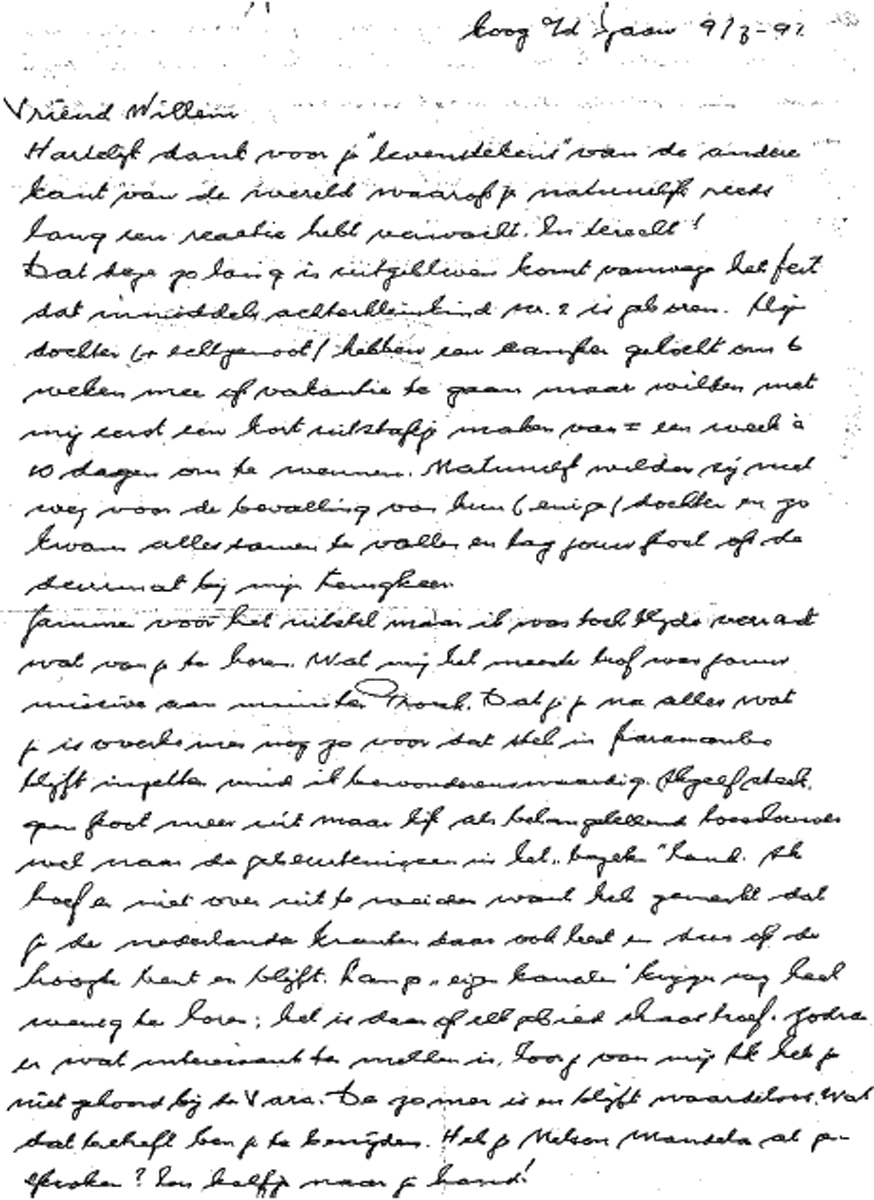 Koog a/d Zaan 9/3-92
Vriend Willem
Hartelijk dank voor je "levensteken" van de andere
kant van de wereld waarop je natuurlijk reeds
lang een reactie hebt verwacht. En terecht!
Dat deze zo lang is uitgebleven komt vanwege het feit
dat inmiddels achterkleinkind nr. 2 is geboren. Mijn
dochter (+ echtgenoot) hebben een camper gekocht om 6
weken mee op vakantie te gaan maar wilden met
mij eerst een kort uitstapje maken van ± een week à
10 dagen om te wennen. Natuurlijk wilden zij niet
weg voor de bevalling van hun (enige) dochter en zo
kwam alles samen te vallen en lag jouw post op de
deurmat bij mijn terugkeer.
Jammer voor het uitstel maar ik was toch blijde verrast
wat van je te horen. Wat mij het meeste trof was jouw
missive aan minister Pronk. Dat je je na alles wat
je is overkomen nog zo voor dat stel in Paramaribo
blijft inzetten vind ik bewonderenswaardig. Ikzelf steek
geen poot meer uit maar kijk als belangstellend toeschouwer
wel naar de gebeurtenissen in het " " land. Ik
hoef er niet over uit te weiden want heb gemerkt dat
je de nederlandse kranten daar ook leest en dus op de
hoogte bent en blijft. Langs "eigen kanalen" krijgen wij heel
weinig te horen; het is daar op elk gebied schaars troef. Zodra
er wat interessant te melden is, hoor je van mij. Ik heb je
niet gehoord bij de Vara. De zomer is en blijft waardeloos. Wat
dat betreft ben je te benijden. Heb je Nelson Mandela al ge-
sproken? Een kolfje naar je hand!